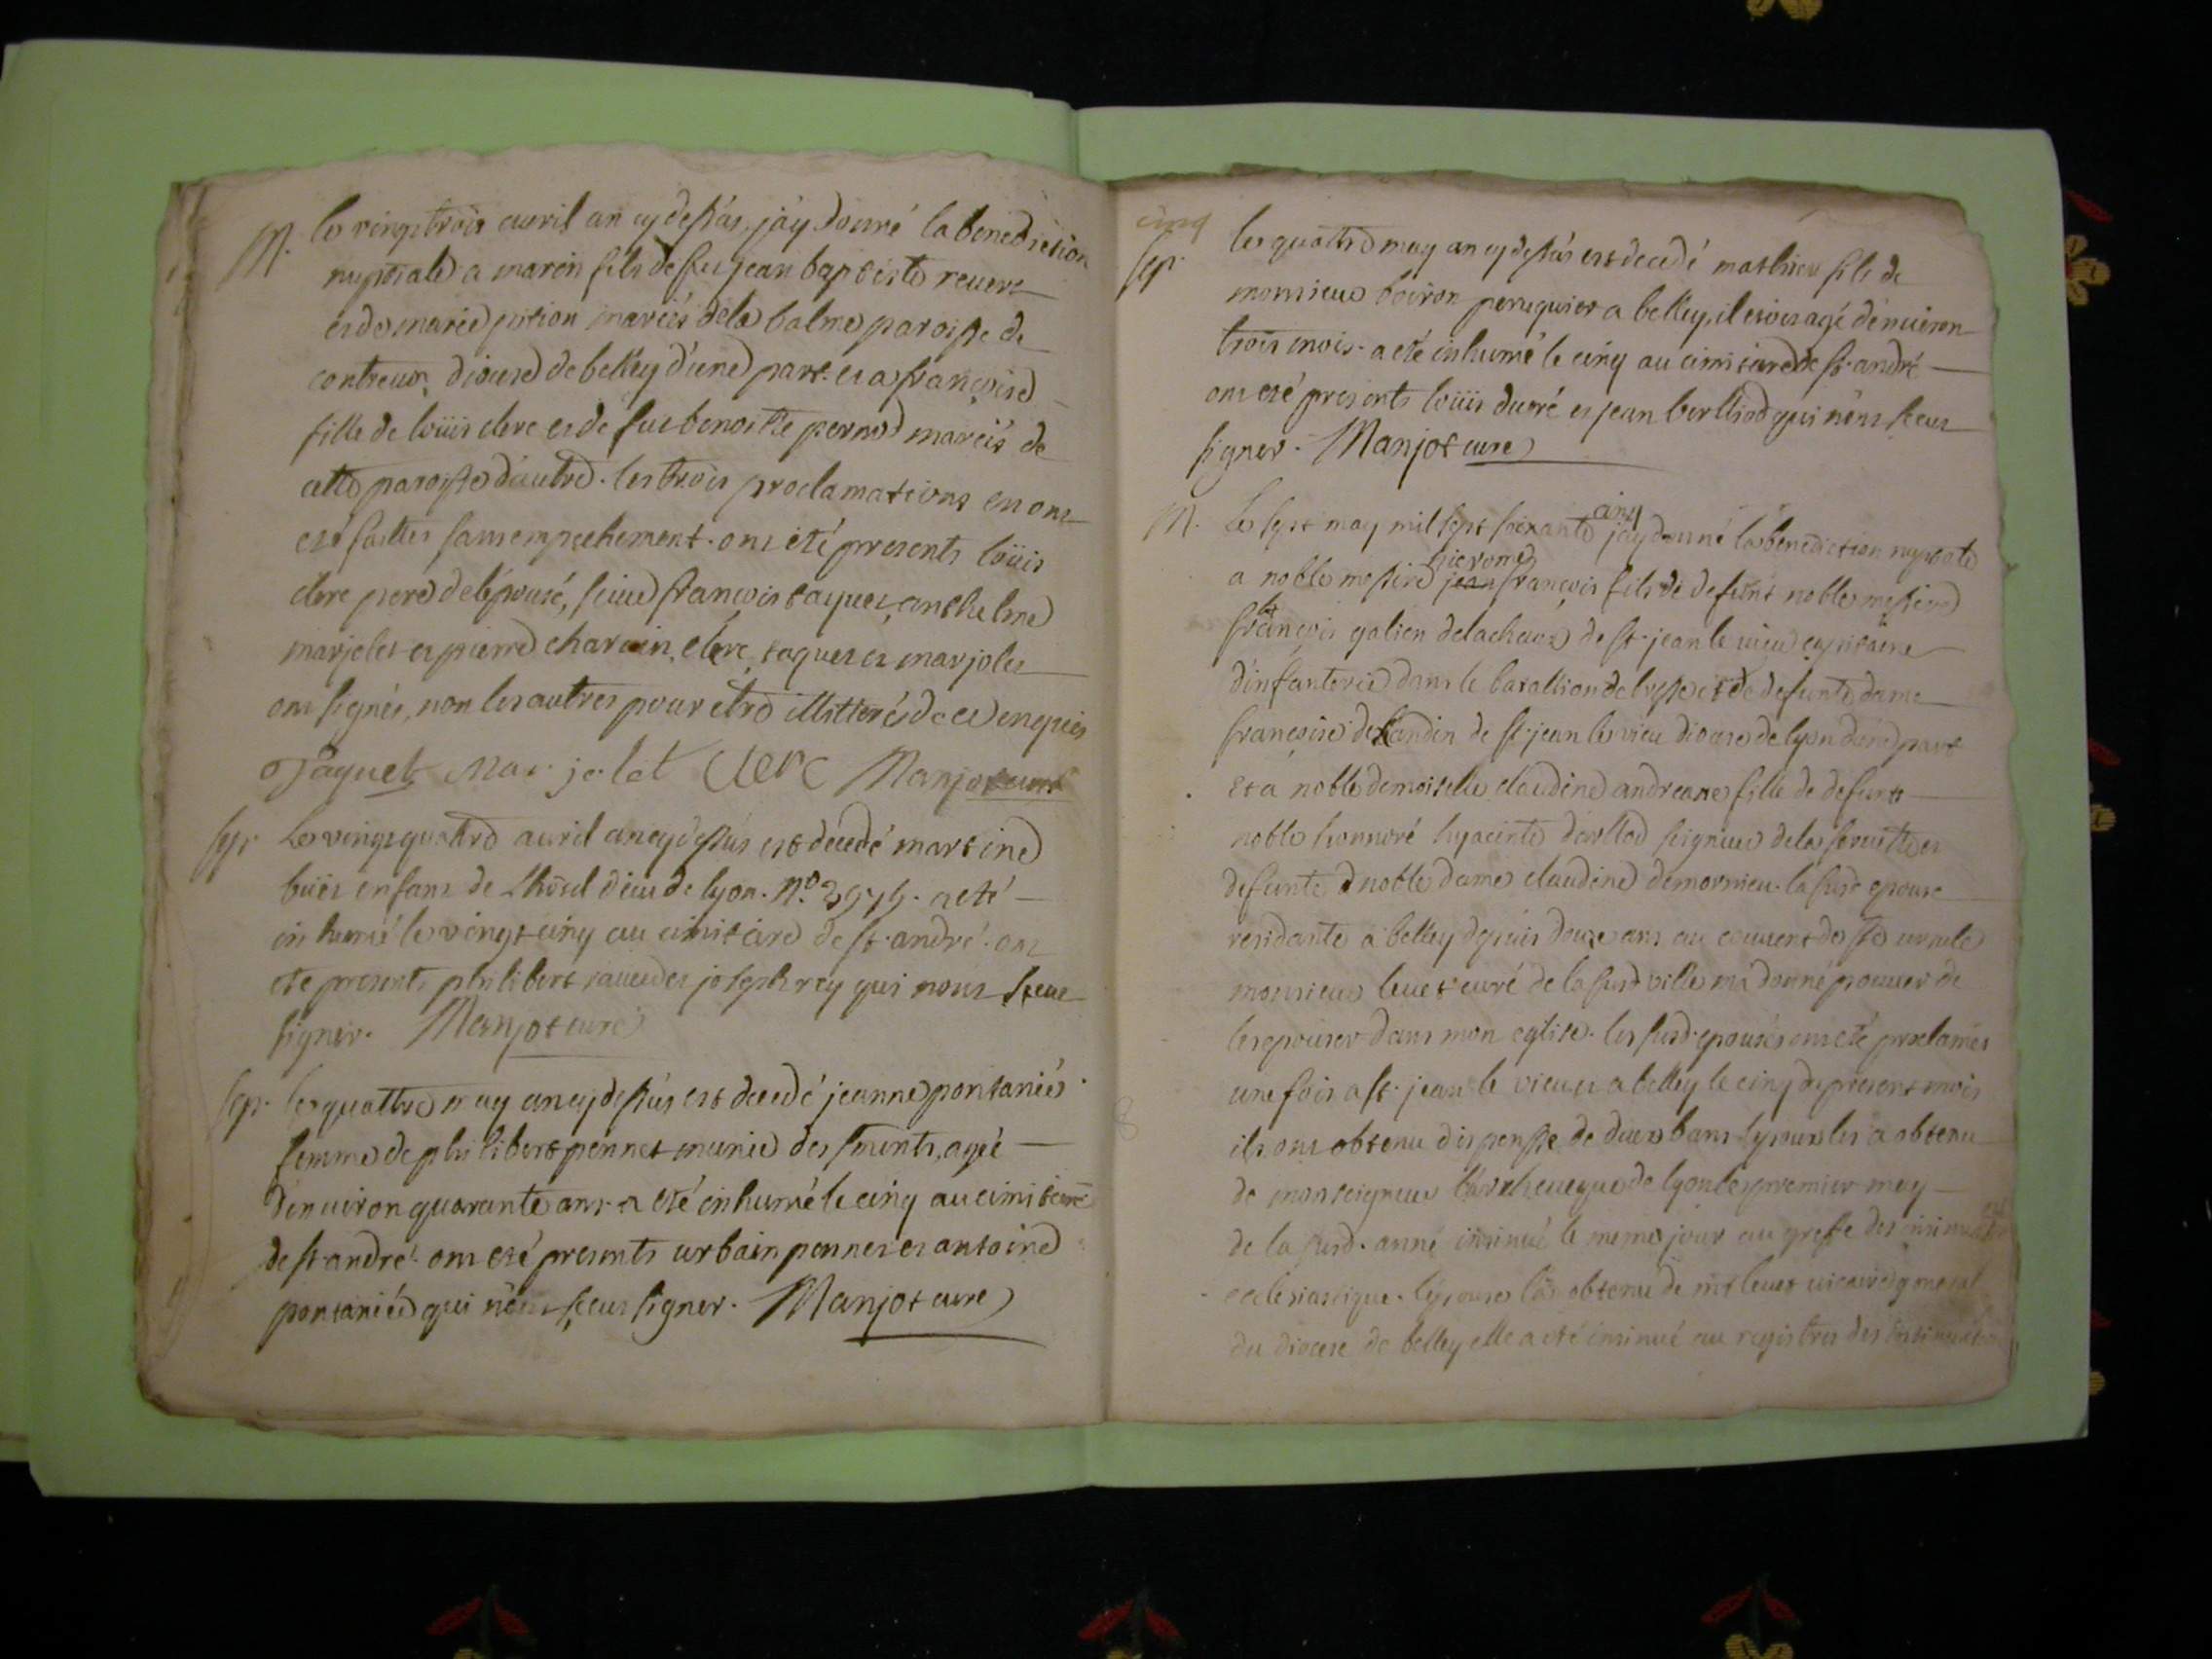 M. le vingt trois avril an cy dessus, jay donné la benediction
nuptiale a marin fils de feu jean baptiste revere
et de marie pition mariés de la balme paroisse de
contreux, diocese de belley d'une part et a françoise
fille de loüis clerc et de fue benoitte pernod mariés de
cette paroisse d'autre. les trois proclamations en ont
eté faittes sans empechement. ont eté presents loüis
clerc pere de l'épousé, sieur françois taquet, anthelme
marjolet et pierre charvin, clerc, taquet et marjolet
ont signés, non les autres pour etre illitterés de ce enquis
Taquet Marjolet Clerc Manjot curé
sep. Le vingt quatre avril an cy dessus est décédé martine
enfant de L'hôtel dieu de lyon. N.o 3979. a eté
inhumé le vingt cinq au cimitiere de st. andré. ont
eté presents philibert et joseph rey qui n'ont sceu
signer. Manjot curé
sep. le quattre may an cy dessus est decedé jeanne pontanier
femme de philibert pennet munie des sacrements, agée
d'environ quarante ans. a eté inhumé le cinq au cimitiere
de st. andré. ont eté presents urbain pennet et antoine
pontanier qui n'ont sceus signer. Manjot curé
cinq
sep. le quattre may an cy dessus est decedé mathieu fils de
monsieur boiron peruquier a belley, il etoit agé d'environ
trois mois. a eté inhumé le cinq au cimitiere de st. andré
ont eté presents loüis ducré et jean berlliod qui n'ont sceus
signer. Manjot curé
cinq
M. Le sept may mil sept soixante jay donné la benediction nuptiale
hierome
a noble messire jean françois fils de defunt noble messire
françois galien delachaux de st. jean le vieux capitaine
d'infanterie dans le batallion de bresse et de defunte dame
françoise de de st. jean le vieu diocese de lyon d'une part
et a noble demoiselle claudine andreane fille de defunt
noble honnoré hyacinte darllod seigneur de la et
defunte noble dame claudine demornieu. la susd epouse
residante a belley depuis douze ans au couvent de ste ursule
monsieur levet curé de la susd ville m'a donné pouvoir de
les epouser dans mon eglise. les susd. epousés ont eté proclamés
une fois a st. jean le vieu et a belley le cinq du present mois
ils ont obtenu dispense de deux bans l'epoux les a obtenu
de monseigneur l'archeveque de lyon le premier may
de la susd. anné insinué le meme jour au greffe des insinuations
eclesiastique. l'epouse la obtenu de mr levet vicaire general
du diocese de belley elle a eté insinué au registres des insinuations